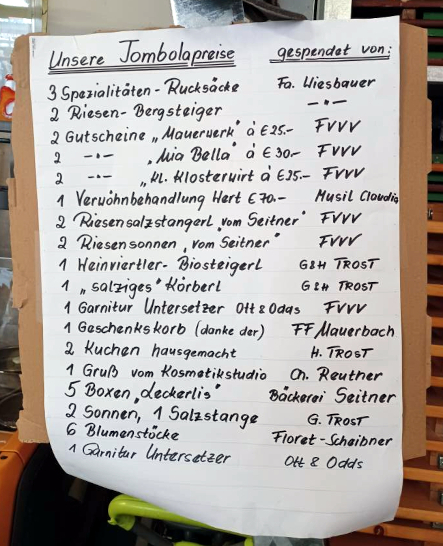 Unsere Tombolapreise gespendet von:
3 Spezialitäten-Rucksäcke Fa. Wiesbauer
2 Riesen-Bergsteiger -"-
2 Gutscheine „Mauerwerk" á € 25.- FVVV
2 -"- „Mia Bella" á € 30.- FVVV
2 -"- „kl. Klosterwirt á € 25.- FVVV
1 Verwöhnbehandlung Wert € 70.- Musil Claudia
2 Riesensalzstangerl „vom Seitner" FVVV
2 Riesensonnen „vom Seitner" FVVV
1 Weinviertler-Biosteigerl G&H TROST
1 „salziges" Körberl G&H TROST
1 Garnitur Untersetzer Ott & Odds FVVV
1 Geschenkskorb (danke der) FF Mauerbach
2 Kuchen hausgemacht H. TROST
1 Gruß vom Kosmetikstudio Ch. Reutner
5 Boxen „Leckerlis" Bäckerei Seitner
2 Sonnen, 1 Salzstange G. TROST
6 Blumenstöcke Floret-Scheibner
1 Garnitur Untersetzer Ott & Odds